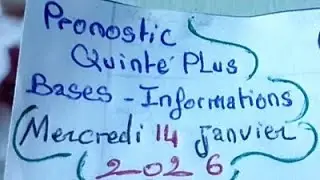 Pronostic
Quinté Plus
Bases - Informations
(Mercredi 14 Janvier)
(2026)